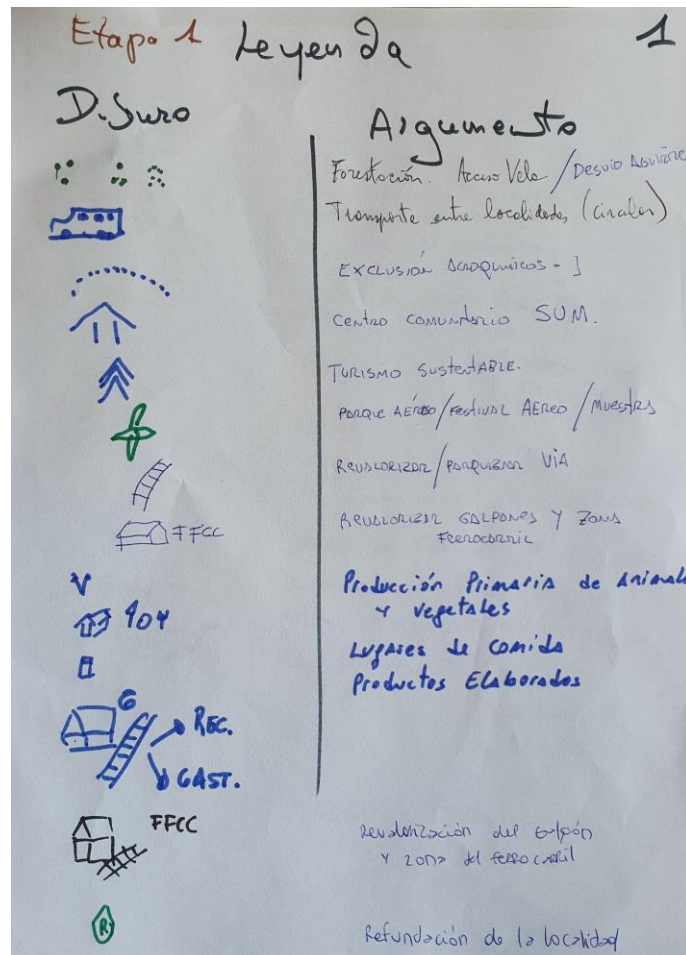 Etapa 1 Leyenda 1
Dibujo Argumento
Forestación. Acceso Vela / Desvio Aguirre
Transporte entre localidades (circular)
EXCLUSIÓN AGROQUIMICOS -
CENTRO COMUNITARIO SUM.
TURISMO SUSTENTABLE.
PARQUE AÉREO / FESTIVAL AEREO / MUESTRAS
REVALORIZAR / PARQUIZAR VIA
FFCC REVALORIZAR GALPONES Y ZONA
FERROCARRIL
V Producción Primaria de Animal
Y Vegetales
Lugares de Comida
Productos Elaborados
6 REC.
GAST.
FFCC
Revalorización del Galpón
Y zona del ferrocarril
R
Refundación de la localidad